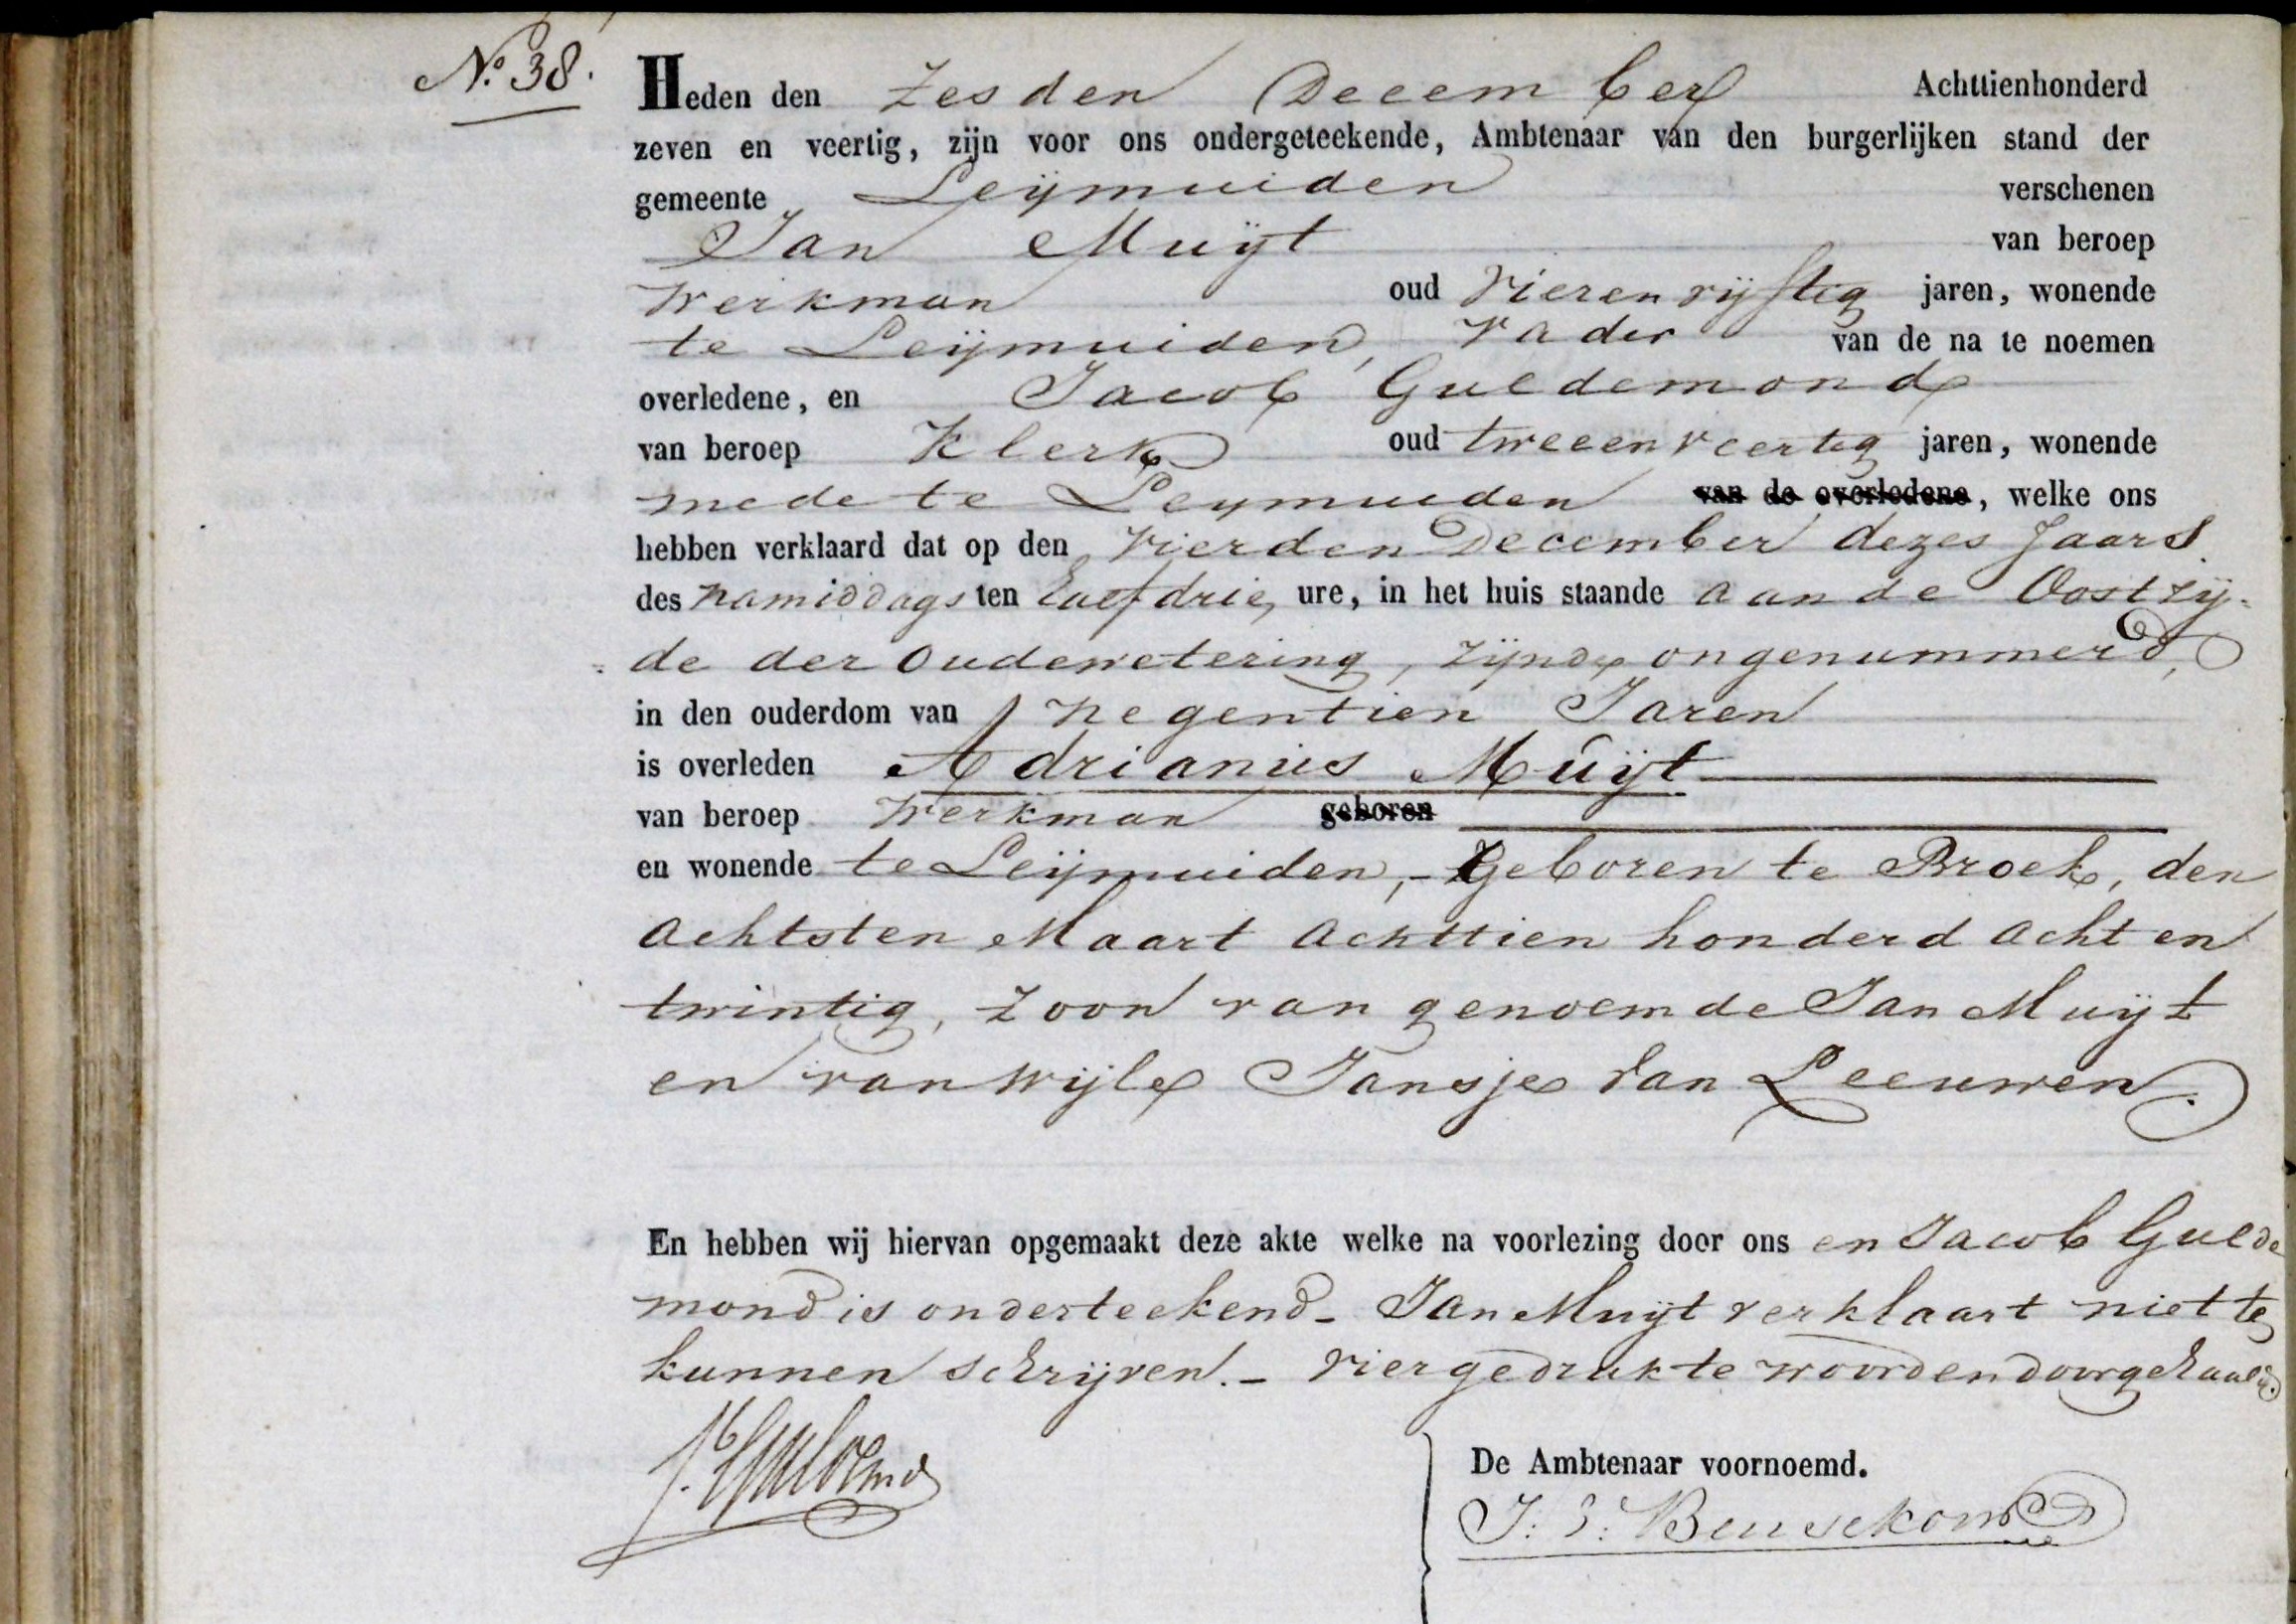 No. 38.
Heden den zesden December Achttienhonderd
zeven en veertig, zijn voor ons ondergeteekende, Ambtenaar van den burgerlijken stand der
gemeente Leijmuiden verschenen
Jan Muijt van beroep
werkman oud vierenvijftig jaren, wonende
te Leijmuiden, vader van de na te noemen
overledene, en Jacob Guldemond
van beroep Klerk oud tweeenveertig jaren, wonende
mede te Leymuiden van de overledene, welke ons
hebben verklaard dat op den vierden December dezes Jaars
des namiddags ten half drie, ure, in het huis staande aan de Oostzij-
de der oudewetering, zijnde ongenummerd,
in den ouderdom van negentien Jaren
is overleden Adrianus Muijt
van beroep werkman geboren
en wonende te Leijmuiden, - geboren te Broek, den
achtsten Maart achttien honderd acht en
twintig, zoon van genoemde Jan Muijt
en van wijle Jansje van Leeuwen.
En hebben wij hiervan opgemaakt deze akte welke na voorlezing door ons en Jacob Gulde
mond is onderteekend - Jan Muijt verklaart niet te
kunnen schrijven. - vier gedrukte woorden doorgehaald.
J. Guldemond
De Ambtenaar voornoemd.
Beusekom